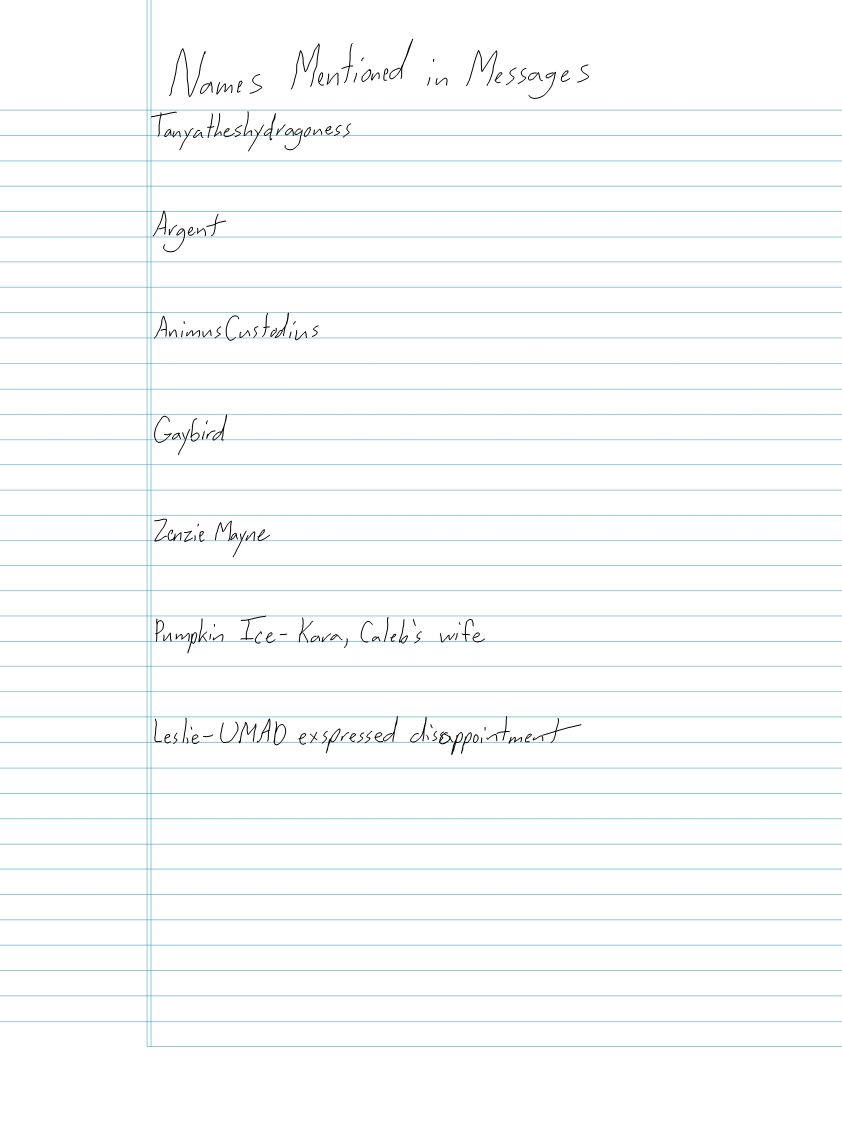 Names Mentioned in Messages
Tanyatheshydragoness
Argent
AnimusCustodius
Gaybird
Zenzie Mayne
Pumpkin Ice- Kara, Caleb's wife
Leslie-UMAD exspressed disappointment